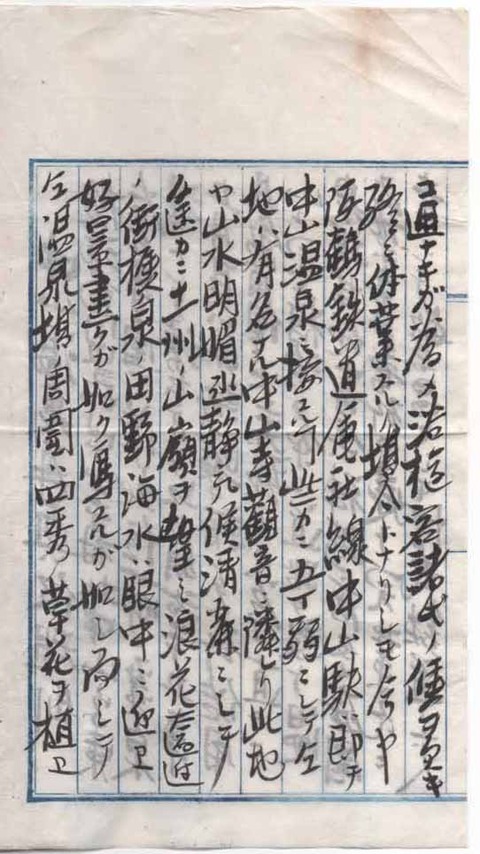 コ通ナキガ為メ浴種客諸氏ノ便ヲ欠キ
終ニ休業スルノ場合トナリシモ今ヤ
阪鶴鉄道会社線中山駅ハ即チ
中山温泉ニ接シテ此ニ五丁弱ニシテ全
地ハ有名ナル中山寺観音ニ隣レリ此地
ヤ山水明媚閑静気候清凉ニシテ
遠カニ十一州ノ山嶺ヲ望ミ浪花
街摂泉ノ田野海水ハ眼中ニ迎ヒ
好景画クガ如ク写スルガ如シ而シテ
全温泉場ノ周囲ハ四季ノ草花ヲ植ヒ